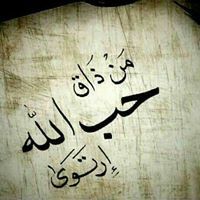 مَنْ ذَاقَ
حب الله
إرتوى